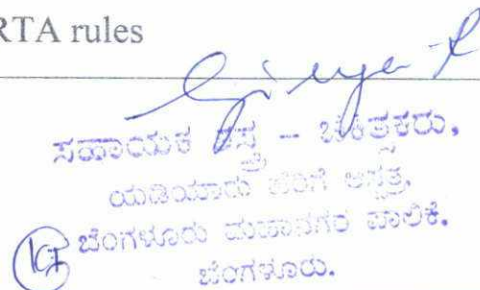 RTA rules
ಸಹಾಯಕ ಶಸ್ತ್ರ - ಚಿಕಿತ್ಸಕರು,
ಯಡಿಯೂರು ಹೆರಿಗೆ ಆಸ್ಪತ್ರೆ,
ಬೆಂಗಳೂರು ಮಹಾನಗರ ಪಾಲಿಕೆ.
ಬೆಂಗಳೂರು.